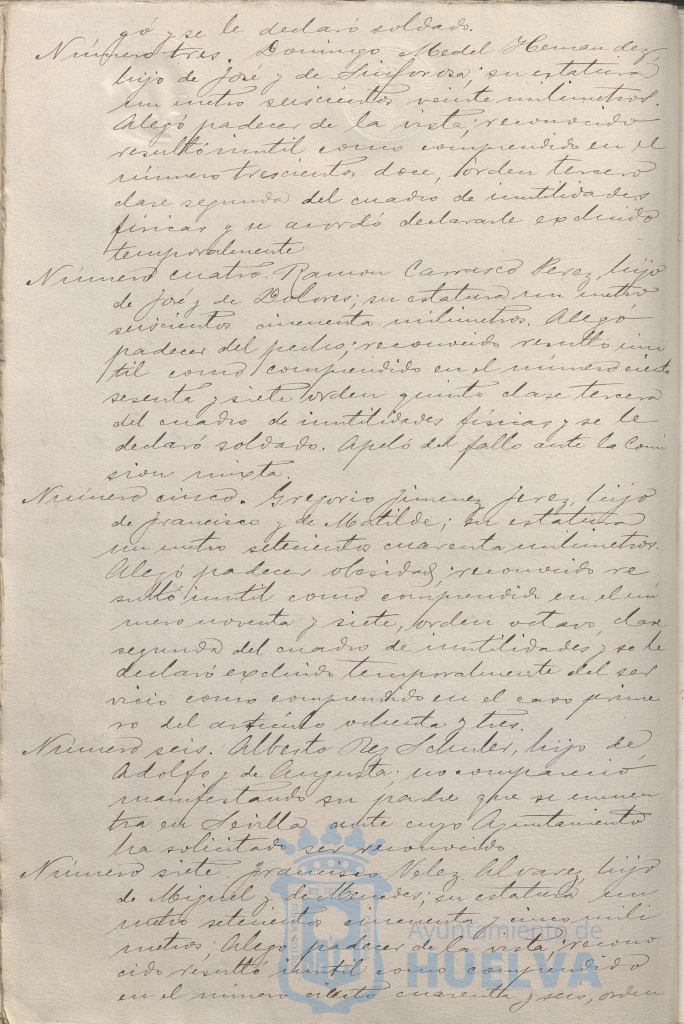 gó y se le declaró soldado.
Número tres. Domingo Medel Hernandez,
hijo de José y de Sinforosa; su estatura
un metro seiscientos veinte milimetros.
Alegó padecer de la vista; reconocido
resultó inutil como comprendido en el
número trescientos doce, orden tercero
clase segunda del cuadro de inutilidades
físicas y se acordó declararle excluido
temporalmente
Número cuatro. Ramon Carrasco Perez, hijo
de José y de Dolores; su estatura un metro
seiscientos cincuenta milimetros. Alegó
padecer del pecho; reconocido resultó inu
til como comprendido en el número ciento
sesenta y siete orden quinto clase tercera
del cuadro de inutilidades físicas y se le
declaró soldado. Apeló del fallo ante la Comi
sion mixta.
Número cinco. Gregorio Jimenez Jerez, hijo
de Francisco y de Matilde; su estatura
un metro setecientos cuarenta milimetros.
Alegó padecer obesidad; reconocido re
sultó inutil como comprendido en el nú
mero noventa y siete, orden octavo, clase
segunda del cuadro de inutilidades y se le
declaró excluido temporalmente del ser
vicio como comprendido en el caso prime
ro del artículo ochenta y tres.
Número seis. Alberto Rey Schuler, hijo de
Adolfo y de Augusta; no compareció
manifestando su padre que se encuen
tra en Sevilla ante cuyo Ayuntamiento
ha solicitado ser reconocido
Número siete. Francisco Velez Alvarez, hijo
de Miguel y de Mercedes; su estatura un
metro setecientos cincuenta y cinco mili
metros. Alegó padecer de la vista; recono
cido resultó inutil como comprendido
en el número ciento cuarenta y seis, orden
Ayuntamiento de
HUELVA